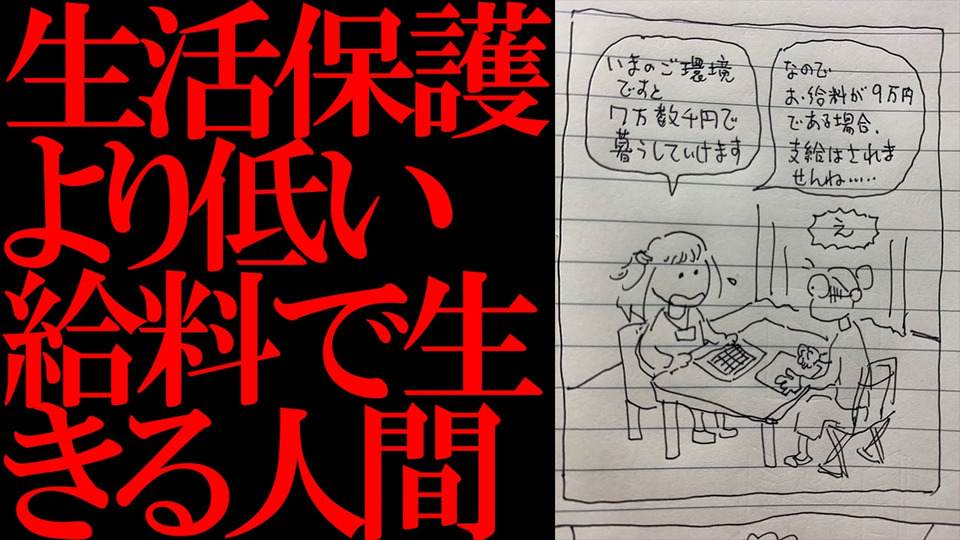 生活保護
より低い
給料で生
きる人間
いまのご環境
ですと
7万数千円で
暮らしていけます
なので
お給料が9万円
である場合、
支給はされま
せんね.....
え